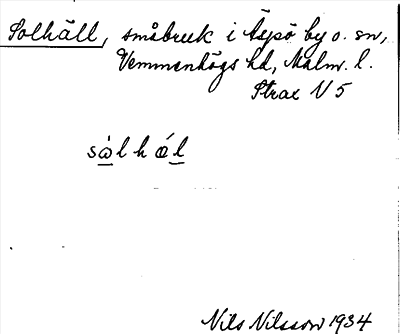 Solhäll, småbruk i Äspö by o. sn,
Vemmenhögs hd, Malm. l.
Strax V 5
sòlhǽl
Nils Nilsson 1934